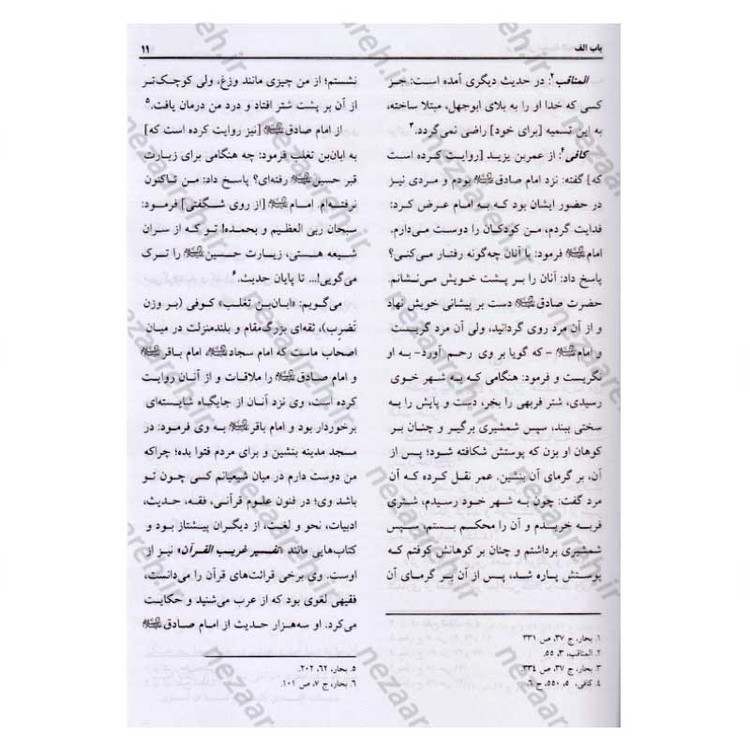 باب الف
۱۱
المناقب۲: در حدیث دیگری آمده است: جز
کسی که خدا او را به بلای ابوجهل، مبتلا ساخته،
به این تسمیه [برای خود] راضی نمی‌گردد.۳
کافی۴: از عمربن یزید [روایت کرده است
که] گفته: نزد امام صادق بودم و مردی نیز
در حضور ایشان بود که به امام عرض کرد:
فدایت گردم، من کودکان را دوست می‌دارم.
امام فرمود: با آنان چه‌گونه رفتار می‌کنی؟
پاسخ داد: آنان را بر پشت خویش می‌نشانم.
حضرت صادق دست بر پیشانی خویش نهاد
و از آن مرد روی گردانید، ولی آن مرد گریست
و امام - که گویا بر وی رحم آورد- به او
نگریست و فرمود: هنگامی که به شهر خوی
رسیدی، شتر فربهی را بخر، دست و پایش را به
سختی ببند، سپس شمشیری برگیر و چنان بر
کوهان او بزن که پوستش شکافته شود؛ پس از
آن، بر گرمای آن بنشین. عمر نقل کرده که آن
مرد گفت: چون به شهر خود رسیدم، شتری
فربه خریدم و آن را محکم بستم، سپس
شمشیری برداشتم و چنان بر کوهانش کوفتم که
پوستش پاره شد، پس از آن بر گرمای آن
۱. بحار، ج ۳۷، ص ۳۳۱
۲. المناقب، ۳، ۵۵.
۳. بحار، ج ۳۷، ص ۳۳۴.
۴. کافی، ۵، ۵۵۰، ح ۶.
نشستم؛ از من چیزی مانند وزغ، ولی کوچک‌تر
از آن بر پشت شتر افتاد و درد من درمان یافت.۵
از امام صادق [نیز روایت کرده است که]
به ابان‌بن تغلب فرمود: چه هنگامی برای زیارت
قبر حسین رفته‌ای؟ پاسخ داد: من تاکنون
نرفته‌ام. امام [از روی شگفتی] فرمود:
سبحان ربی العظیم و بحمده! تو که از سران
شیعه هستی، زیارت حسین را ترک
می‌گویی!... تا پایان حدیث.۶
می‌گویم: «ابان‌بن تغلب» کوفی (بر وزن
تضرب)، ثقه‌ای بزرگ‌مقام و بلندمنزلت در میان
اصحاب ماست که امام سجاد، امام باقر
و امام صادق را ملاقات و از آنان روایت
کرده است، وی نزد آنان از جایگاه شایسته‌ای
برخوردار بود و امام باقر به وی فرمود: در
مسجد مدینه بنشین و برای مردم فتوا بده؛ چراکه
من دوست دارم در میان شیعیانم کسی چون تو
باشد وی؛ در فنون علوم قرآنی، فقه، حدیث،
ادبیات، نحو و لغت، از دیگران پیشتاز بود و
کتاب‌هایی مانند «تفسیر غریب القرآن» نیز از
اوست. وی برخی قرائت‌های قرآن را می‌دانست،
فقیهی لغوی بود که از عرب می‌شنید و حکایت
می‌کرد. او سه‌هزار حدیث از امام صادق
۵. بحار، ۶۲، ۲۰۲.
۶. بحار، ج ۷، ص ۱۰۱.
nezaareh.ir